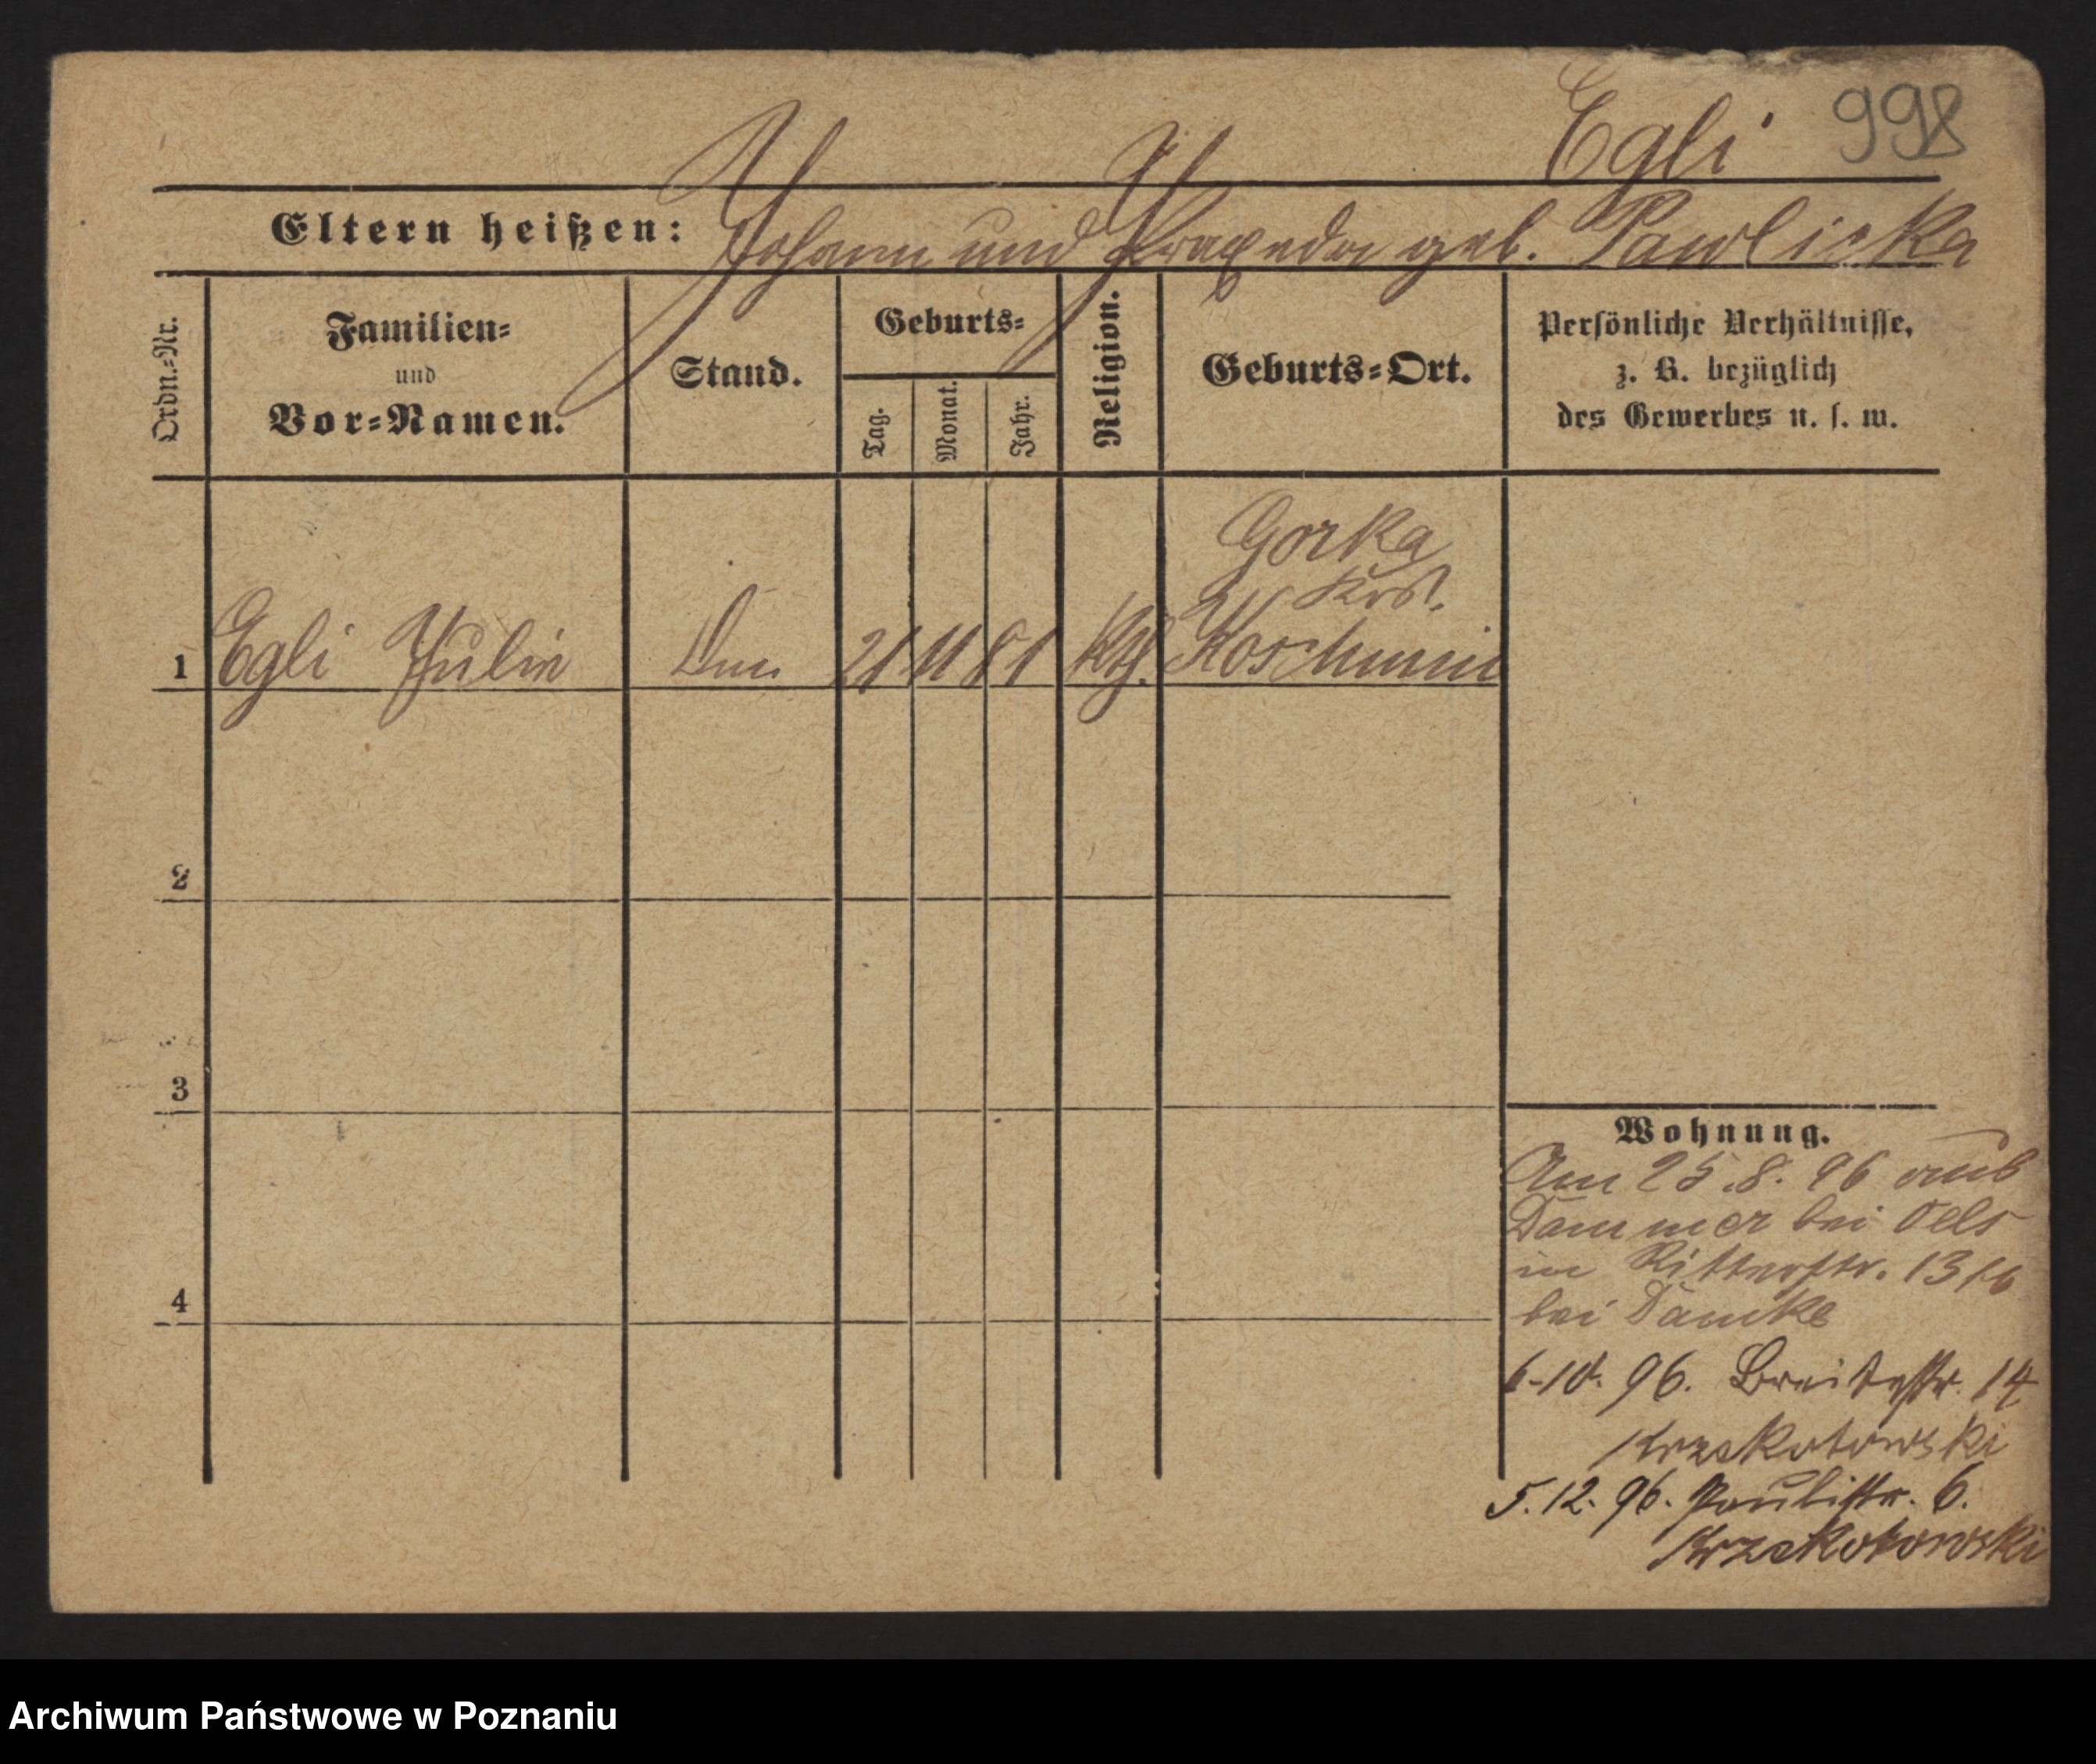 Egli 998
Eltern heißen: Johann und Praxeda geb. Pawlicka
Ordn.-Nr.
Familien-
und
Vor-Namen.
Stand.
Geburts-
Tag.
Monat.
Jahr.
Religion.
Geburts-Ort.
Persönliche Verhältnisse,
z. B. bezüglich
des Gewerbes u. s. w.
Gorka
Krs.
1 Egli Julie 21 11 81 Kth. Koschmin
2
3
4
Wohnung.
Am 25.8.96 aus
Dammer bei Oels
in Ritterstr. 13
bei Damke
6-10. 96. Breitestr. 14
Krzekotowski
5.12.96. Paulistr. 6.
Krzekotowski
Archiwum Państwowe w Poznaniu